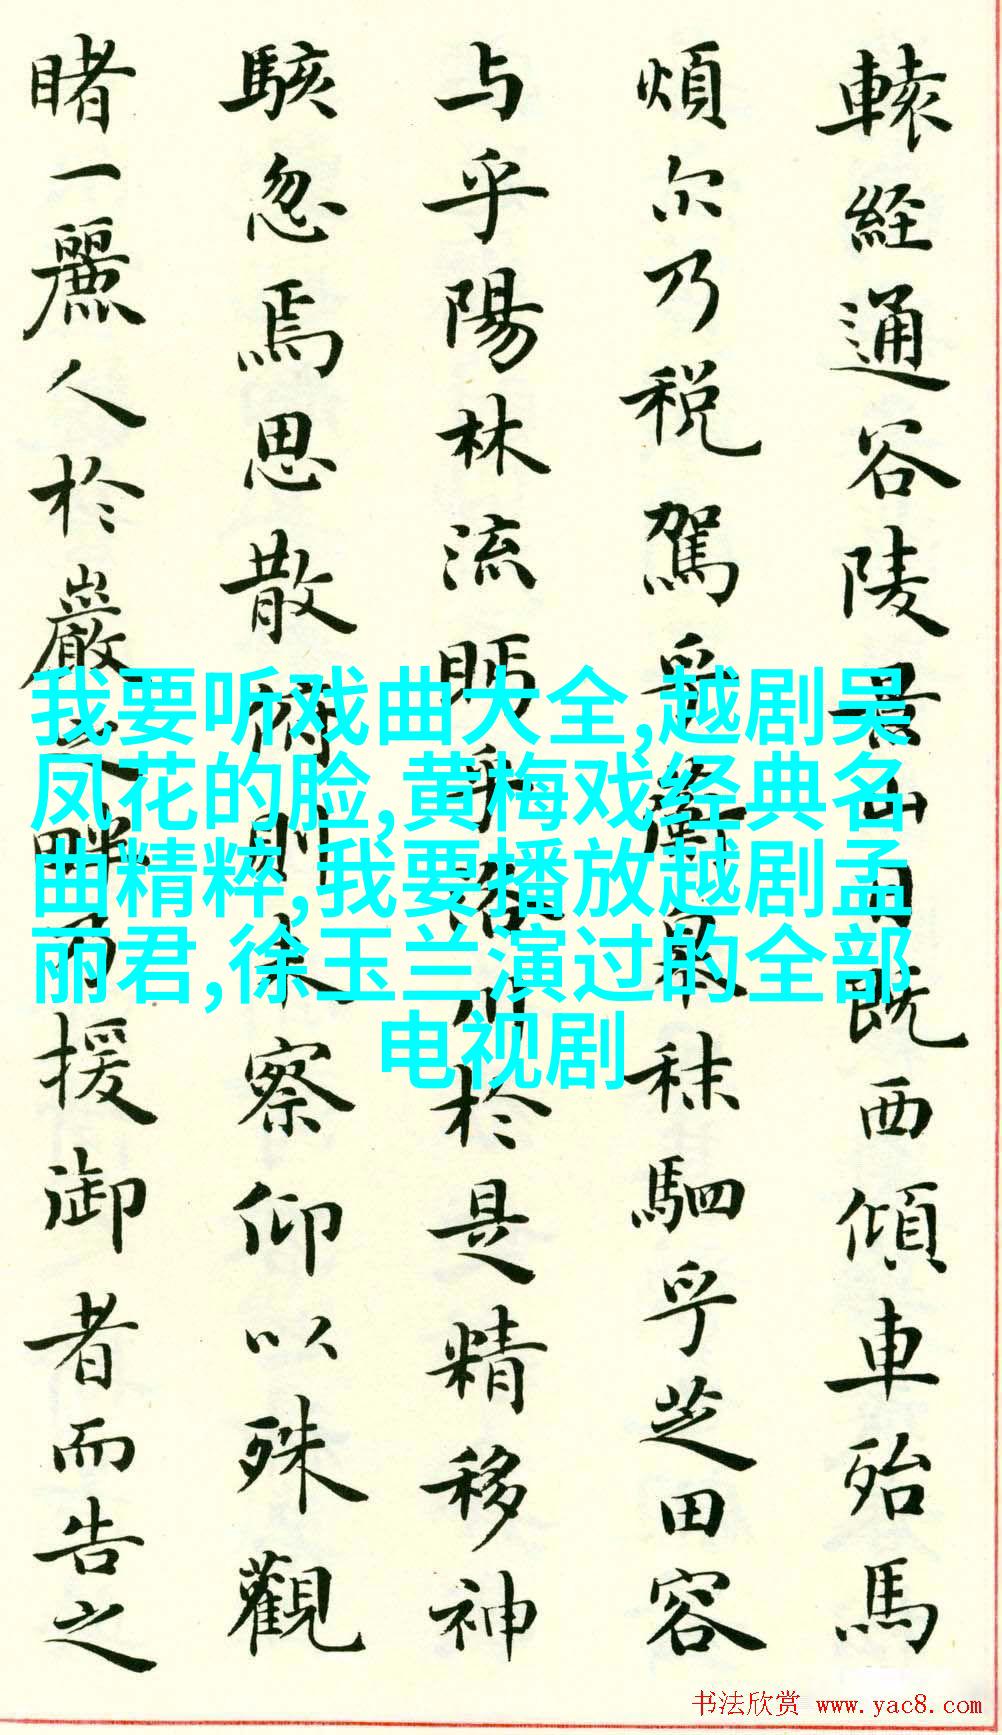 轅經通谷陵景山日既西傾車殆馬
煩尔乃税駕乎蘅皋秣駟乎芝田容
与乎陽林流眄乎洛川於是精移神
駭忽焉思散俯則未察仰以殊觀
睹一麗人於巖之畔乃援御者而告之
我要听戏曲大全,越剧吴
凤花的脸,黄梅戏经典名
曲精粹,我要播放越剧孟
丽君,徐玉兰演过的全部
电视剧
书法欣赏 www.yac8.com